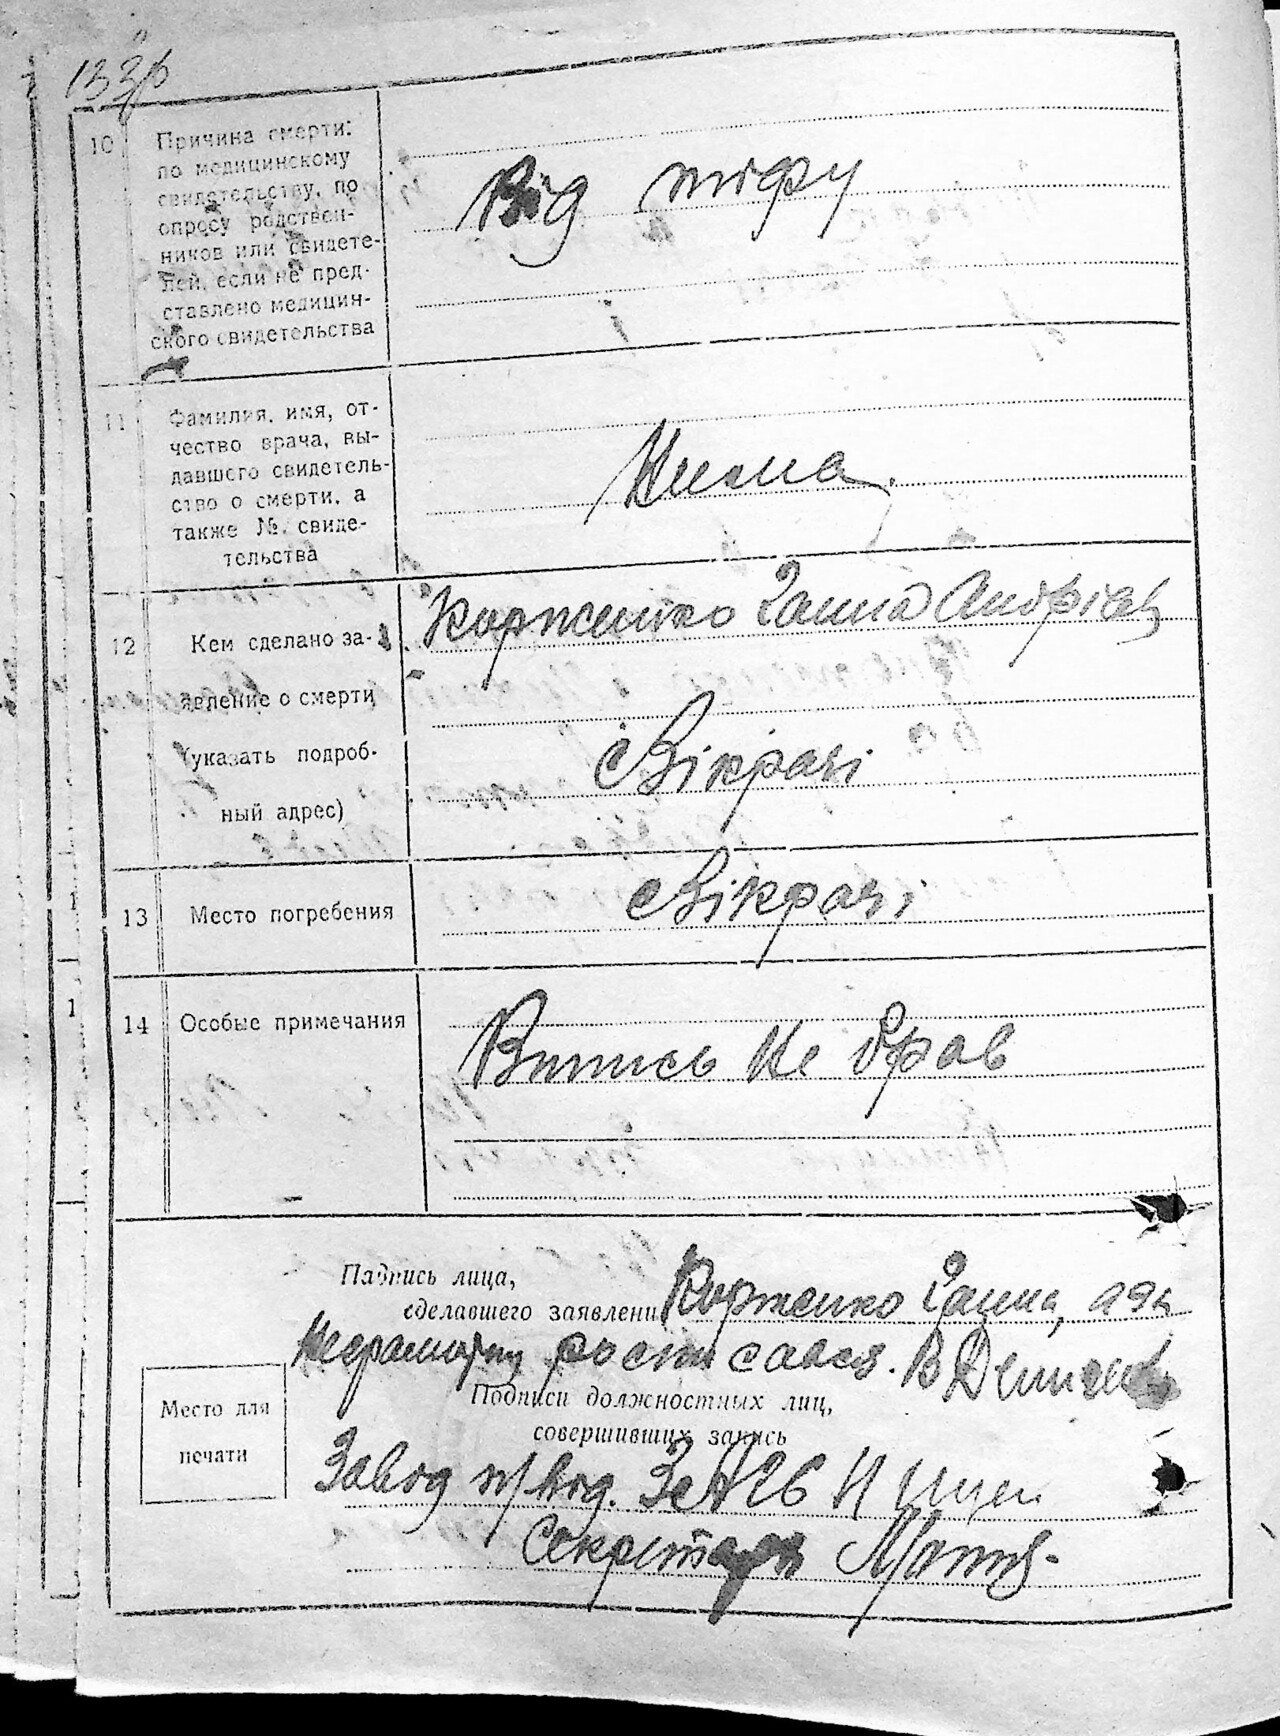 10
Причина смерти:
по медицинскому
свидетельству, по
опросу родствен-
ников или свидете-
лей, если не пред-
ставлено медицин-
ского свидетельства
Від тіфу
11
Фамилия, имя, от-
чество врача, вы-
давшего свидетель-
ство о смерти, а
также №. свиде-
тельства
Нисма.
12
Кем сделано за-
явление о смерти
(указать подроб-
ный адрес)
Корженко Ганна Андріев
с Вікрачі
13
Место погребения
с Вікрачі
14
Особые примечания
Випись не брав
Подпись лица,
сделавшего заявлени Корженко Ганна, а за
неграмотну росписався. В
Подписи должностных лиц,
совершивших запись
Место для
печати
Завод п/від. ЗАГС
Секретарь